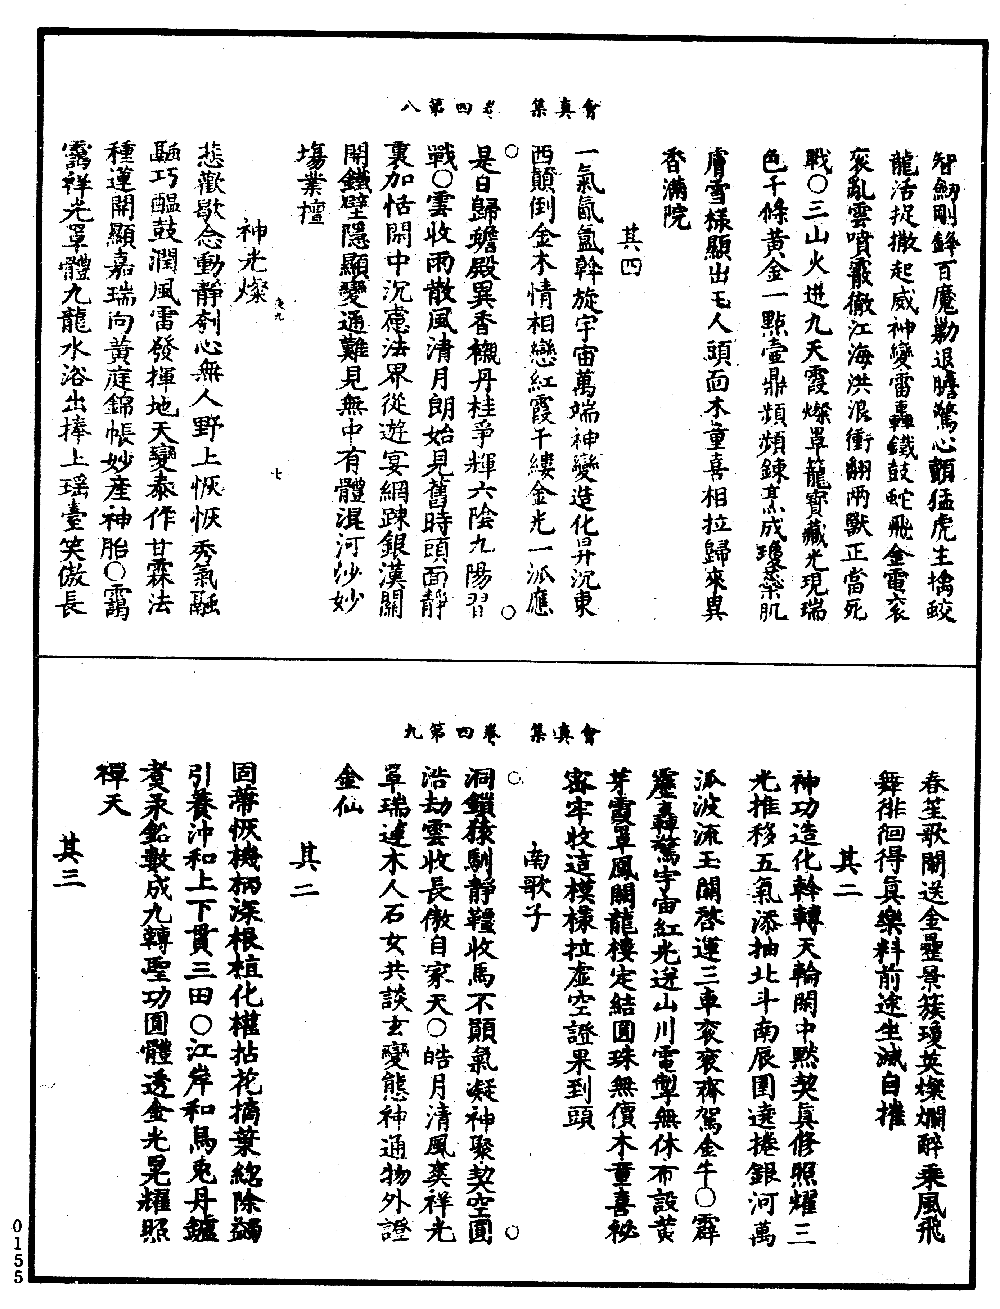 會真集　卷四第八
智劒剛鋒百魔勒退膽驚心顫猛虎生擒蛟
龍活捉撒起威神變雷轟鐵鼓蛇飛金電衮
衮亂雲噴霰徹江海洪浪衝翻兩獸正當死
戰○三山火迸九天霞燦罩籠寶藏光現瑞
色千條黃金一點壹鼎頻頻鍊烹成瓊蘂肌
膚雪樣顯出玉人頭面木童喜相拉歸來異
香滿院
其四
一氣氤氳斡旋宇宙萬端神變造化昇沉東
西顛倒金木情相戀紅霞千縷金光一派應
是日歸蟾殿異香襯丹桂爭輝六陰九陽習
戰○雲收雨散風清月朗始見舊時頭面靜
裏加恬閑中沉慮法界從遊宴網踈銀漢關
開鐵壁隱顯變通難見無中有體混河沙妙
塲業擅
神光燦
悲歡歇念動靜刳心無人野上恢恢秀氣融
融巧醞鼓潤風雷發揮地天變泰作甘霖法
種蓮開顯嘉瑞向黃庭錦帳妙產神胎○靄
靄祥光罩體九龍水浴出捧上瑶臺笑傲長
七
會真集　卷四第九
春笙歌閙送金罍景簇瓊英燦爛醉乘風飛
舞徘徊得真樂料前途生滅自摧
其二
神功造化斡轉天輪閑中默契真修照耀三
光推移五氣添抽北斗南辰圍遶捲銀河萬
派波流玉關啓運三車衮衮齊駕金牛○霹
靂轟驚宇宙紅光迸山川電掣無休布設黃
芽霞罩鳳閣龍樓定結圓珠無價木童喜祕
密牢收這模樣拉虛空證果到頭
南歌子
洞鎖猿馴靜韁收馬不顛氣凝神聚契空圓
浩劫雲收長傲自家天○皓月清風奕祥光
罩瑞蓮木人石女共談玄變態神通物外證
金仙
其二
固蔕恢機柄深根植化權拈花摘葉緫除蠲
引養沖和上下貫三田○江岸和烏兎丹鑪
煑汞鉛數成九轉聖功圓體透金光晃耀照
禪天
其三
0155